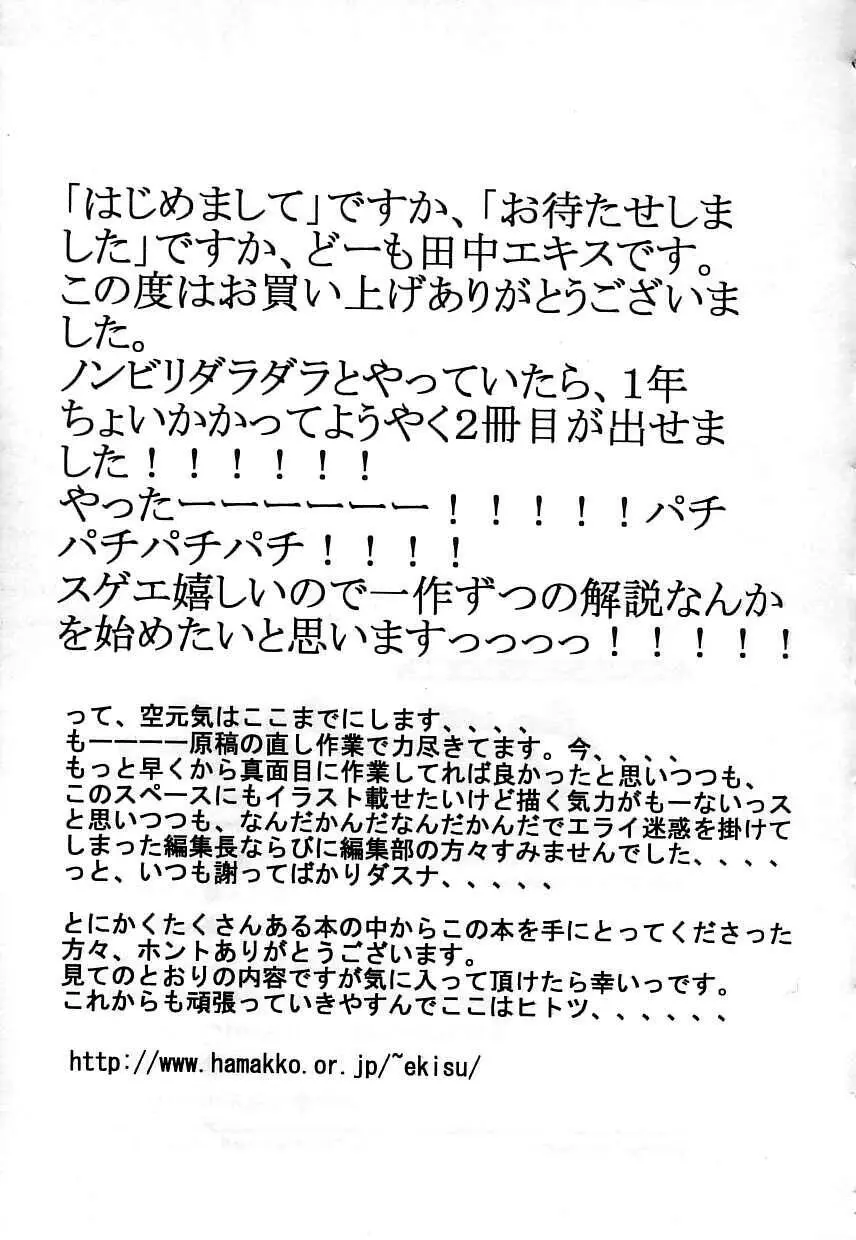 「はじめまして」ですか、「お待たせしま
した」ですか、どーも田中エキスです。
この度はお買い上げありがとうございま
した。
ノンビリダラダラとやっていたら、１年
ちょいかかってようやく２冊目が出せま
した！！！！！！
やったーーーーーー！！！！！パチ
パチパチパチ！！！！
スゲエ嬉しいので一作ずつの解説なんか
を始めたいと思いますっっっっ！！！！！
って、空元気はここまでにします、、、、
もーーーー原稿の直し作業で力尽きてます。今、、、、
もっと早くから真面目に作業してれば良かったと思いつつも、
このスペースにもイラスト載せたいけど描く気力がもーないっス
と思いつつも、なんだかんだなんだかんだでエライ迷惑を掛けて
しまった編集長ならびに編集部の方々すみませんでした、、、、
っと、いつも謝ってばかりダスナ、、、、、
とにかくたくさんある本の中からこの本を手にとってくださった
方々、ホントありがとうございます。
見てのとおりの内容ですが気に入って頂けたら幸いっです。
これからも頑張っていきやすんでここはヒトツ、、、、、、
http://www.hamakko.or.jp/~ekisu/